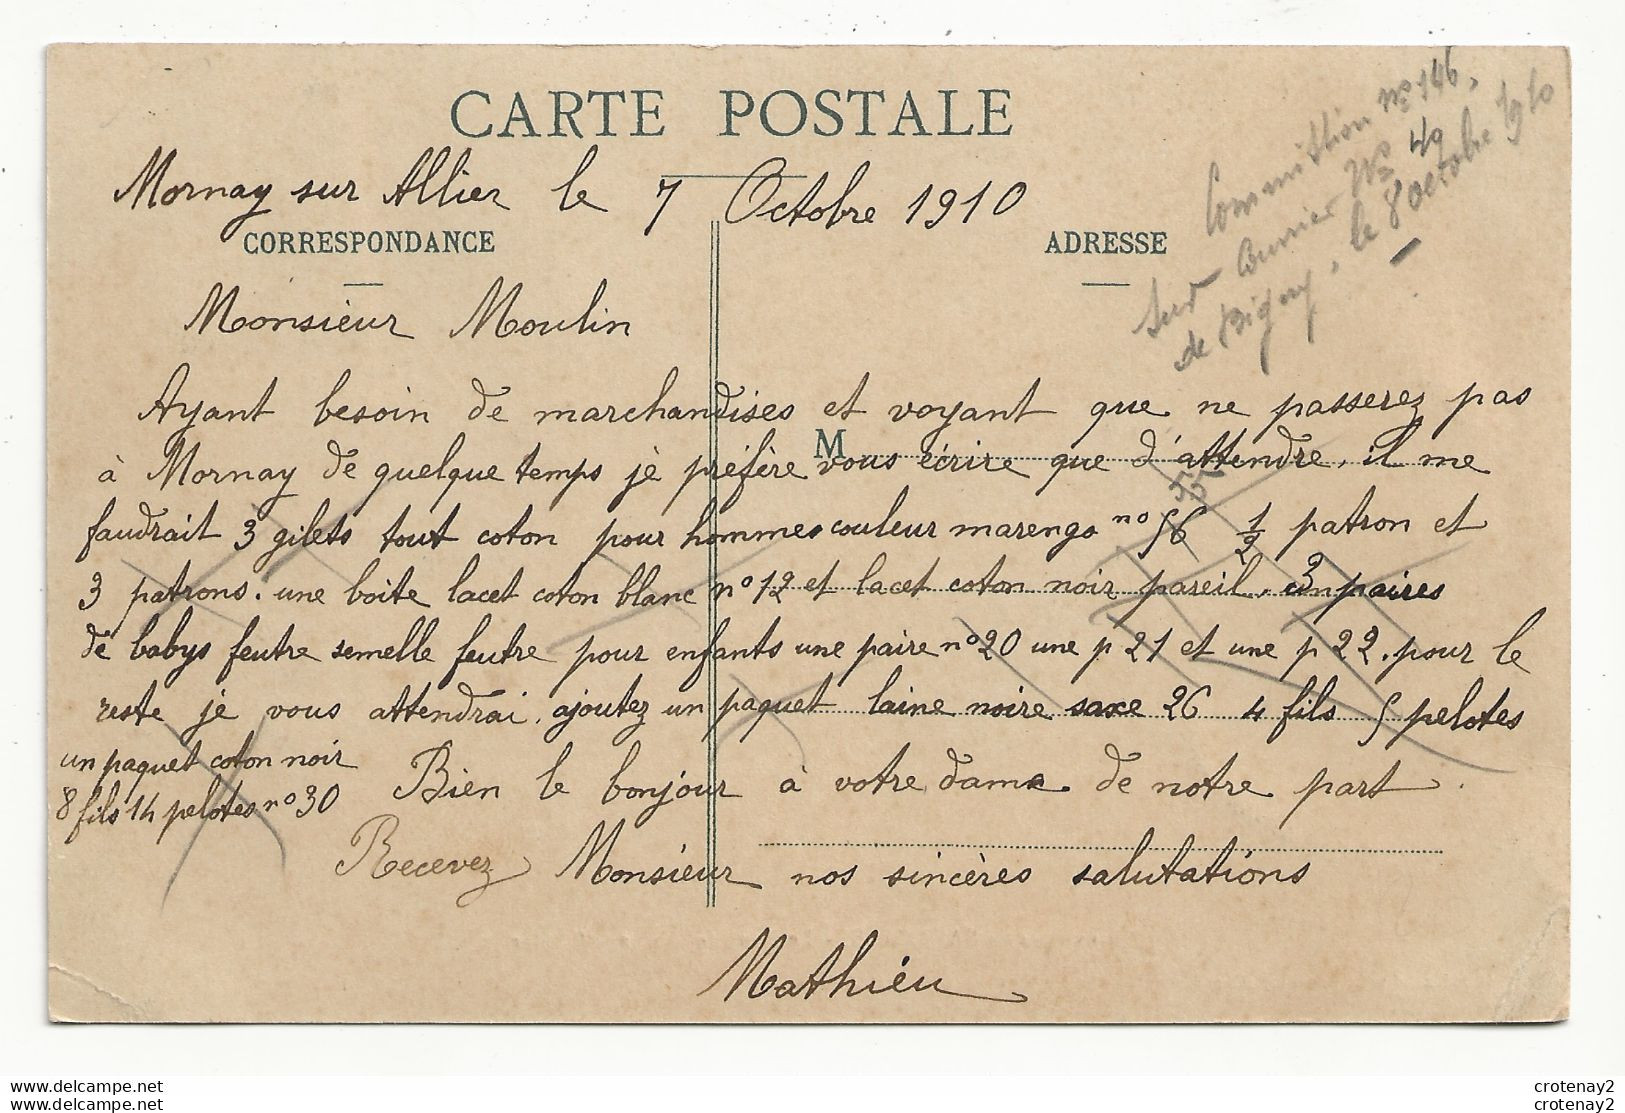 CARTE POSTALE
Commission N° 146.
sur Courrier N° 40
de Bigny, le 8 octobre 1910
Mornay sur Allier le 7 Octobre 1910
CORRESPONDANCE
ADRESSE
Monsieur Moulin
Ayant besoin de marchandises et voyant que ne passerez pas
M
à Mornay de quelque temps je préfère vous écrire que d'attendre, il me
55
faudrait 3 gilets tout coton pour hommes couleur marengo n° 56 1/2 patron et
3 patrons. une boite lacet coton blanc n° 12 et lacet coton noir pareil, 3 paires
de babys feutre semelle feutre pour enfants une paire n° 20 une p 21 et une p 22. pour le
reste je vous attendrai. ajoutez un paquet laine noire saxe 26 4 fils 5 pelotes
un paquet coton noir
8 fils 14 pelotes n° 30
Bien le bonjour à votre dame de notre part.
Recevez Monsieur nos sincères salutations
Mathieu
www.delcampe.net
www.delcampe.net
crotenay2
crotenay2